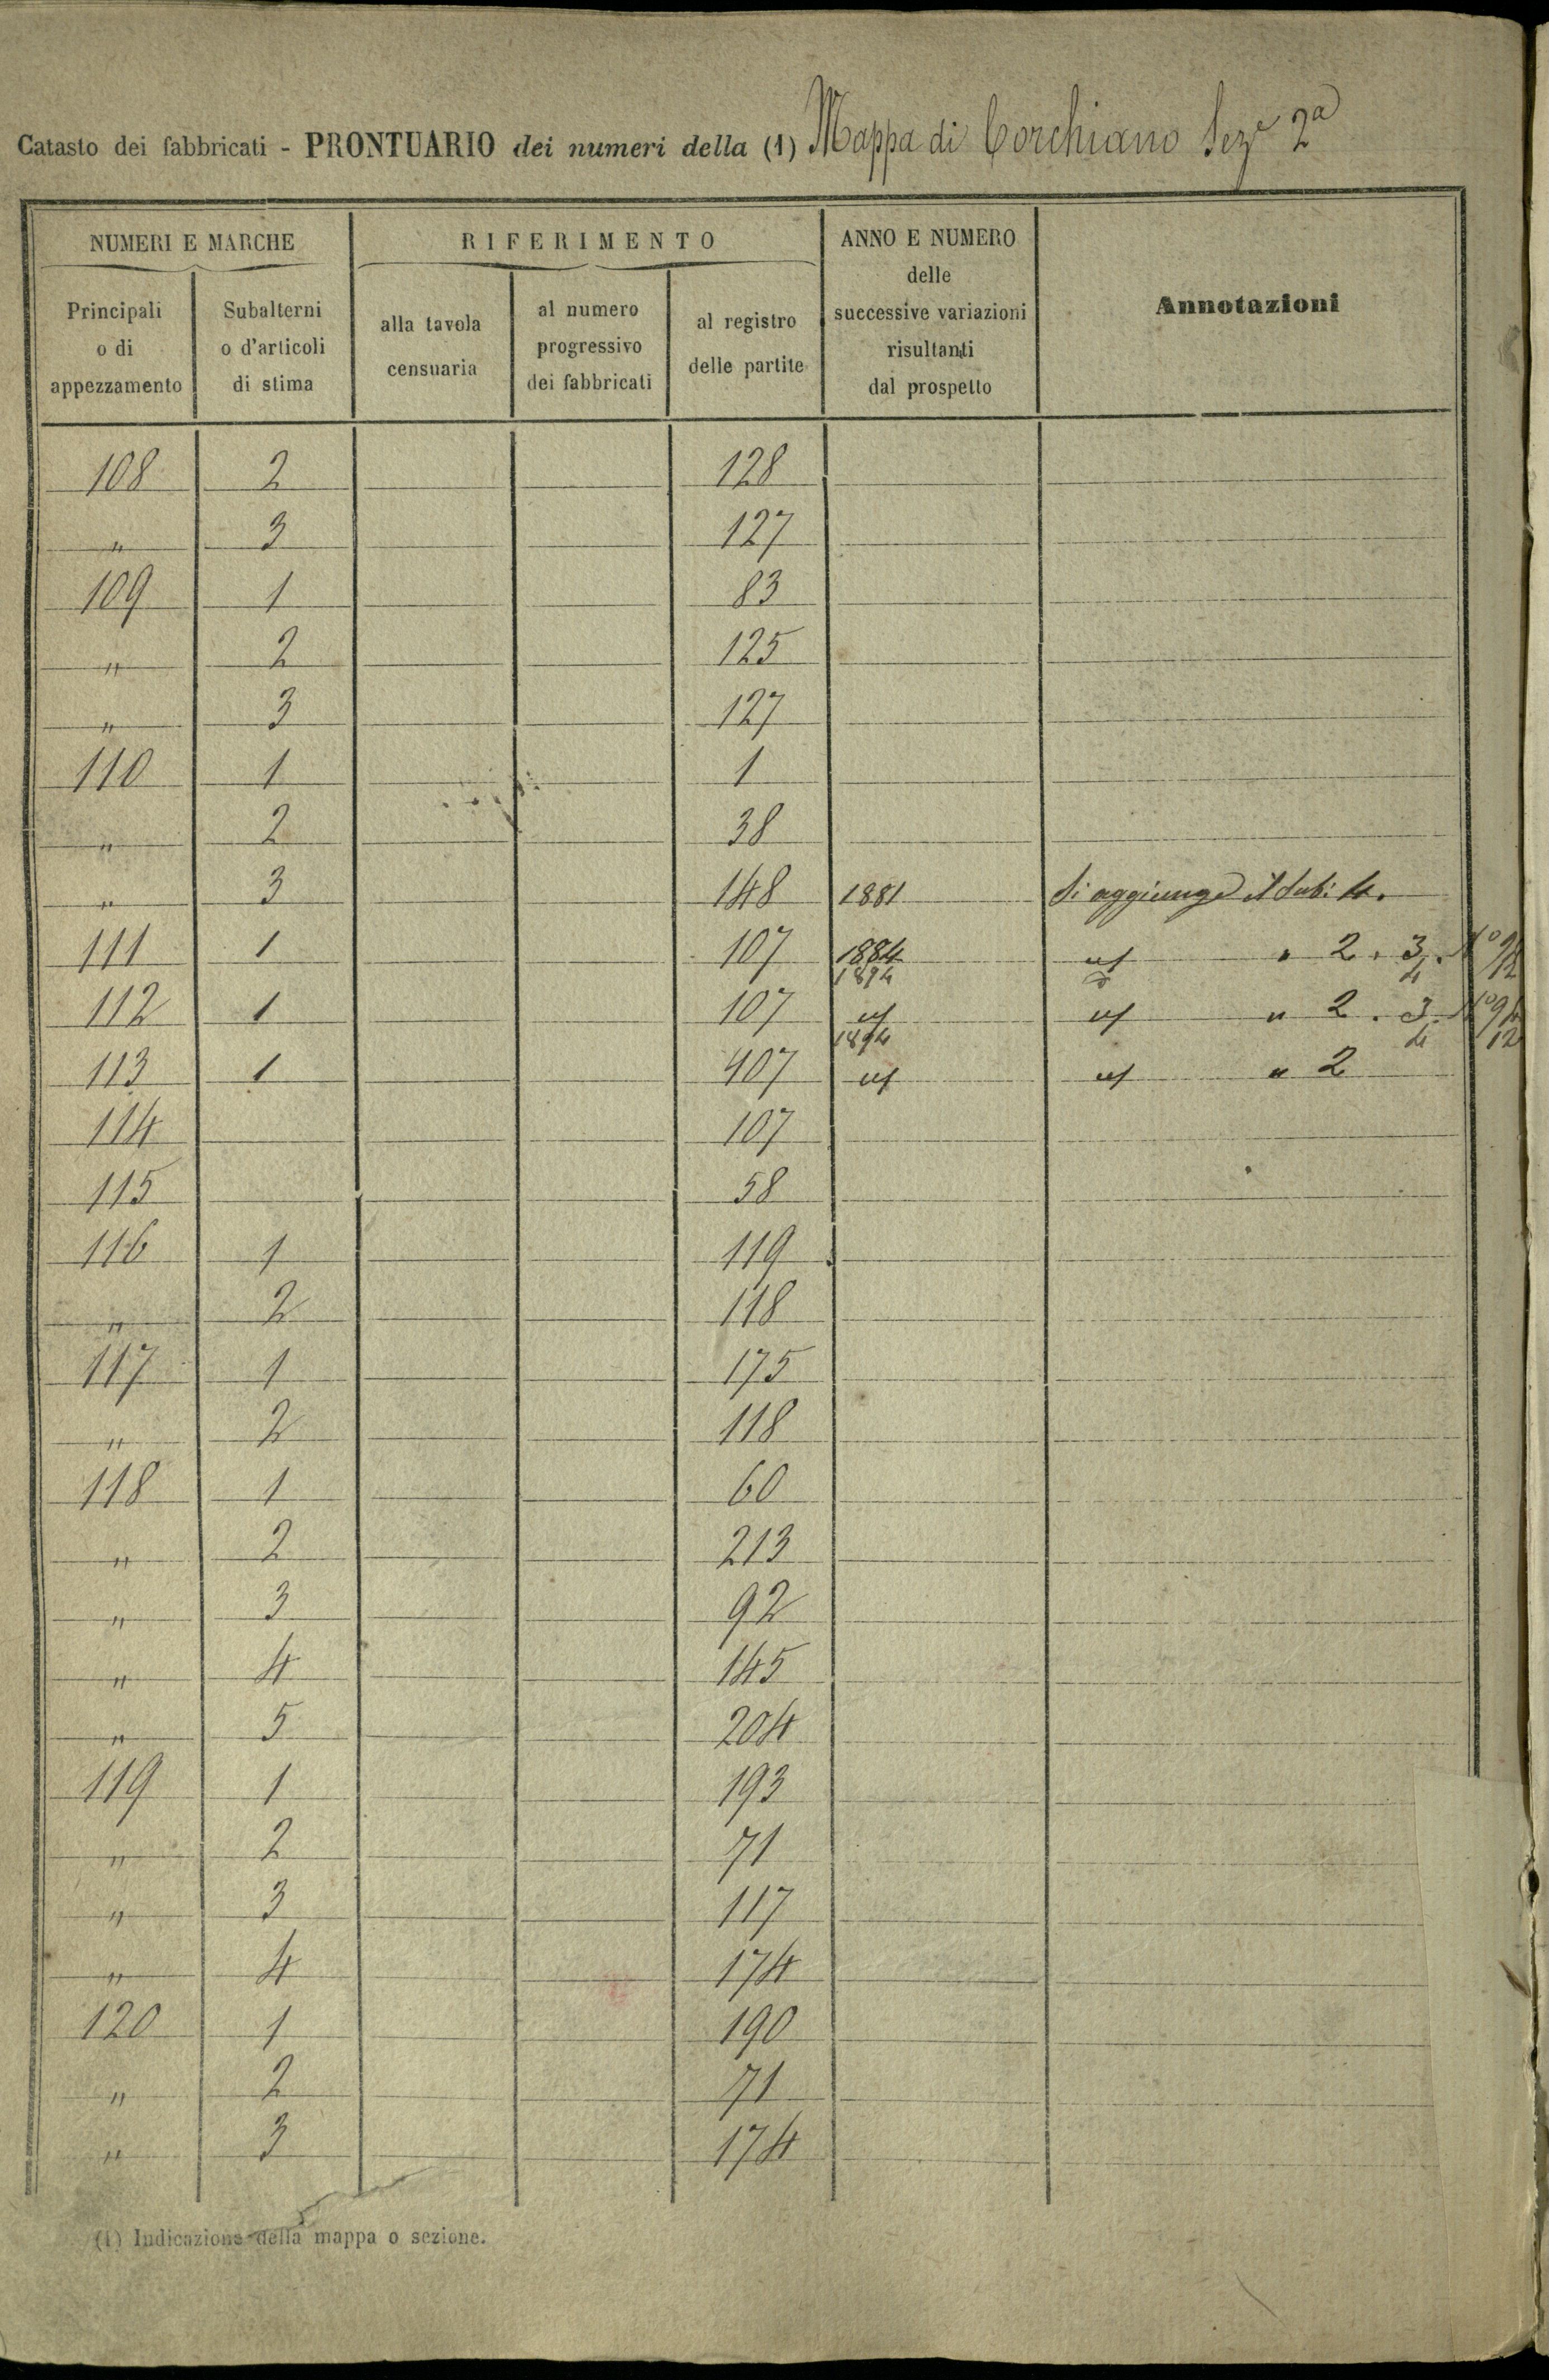 Catasto dei fabbricati - PRONTUARIO dei numeri della (1) Mappa di Corchiano Seze 2a
NUMERI E MARCHE
RIFERIMENTO
ANNO E NUMERO
delle
successive variazioni
risultanti
dal prospetto
Annotazioni
Principali
o di
appezzamento
Subalterni
o d'articoli
di stima
alla tavola
censuaria
al numero
progressivo
dei fabbricati
al registro
delle partite
108 2 128
" 3 127
109 1 83
" 2 125
" 3 127
110 1 1
" 2 38
" 3 148 1881 Si aggiunge il Sub: 4.
111 1 107 1884 " 2. 3.
1894 4 12
112 1 107 " 2. 3.
1894 4 12
113 1 107 " 2
114 107
115 58
116 1 119
" 2 118
117 1 175
" 2 118
118 1 60
" 2 213
" 3 92
" 4 145
" 5 204
119 1 193
" 2 71
" 3 117
" 4 174
120 1 190
" 2 71
" 3 174
(1) Indicazione della mappa o sezione.